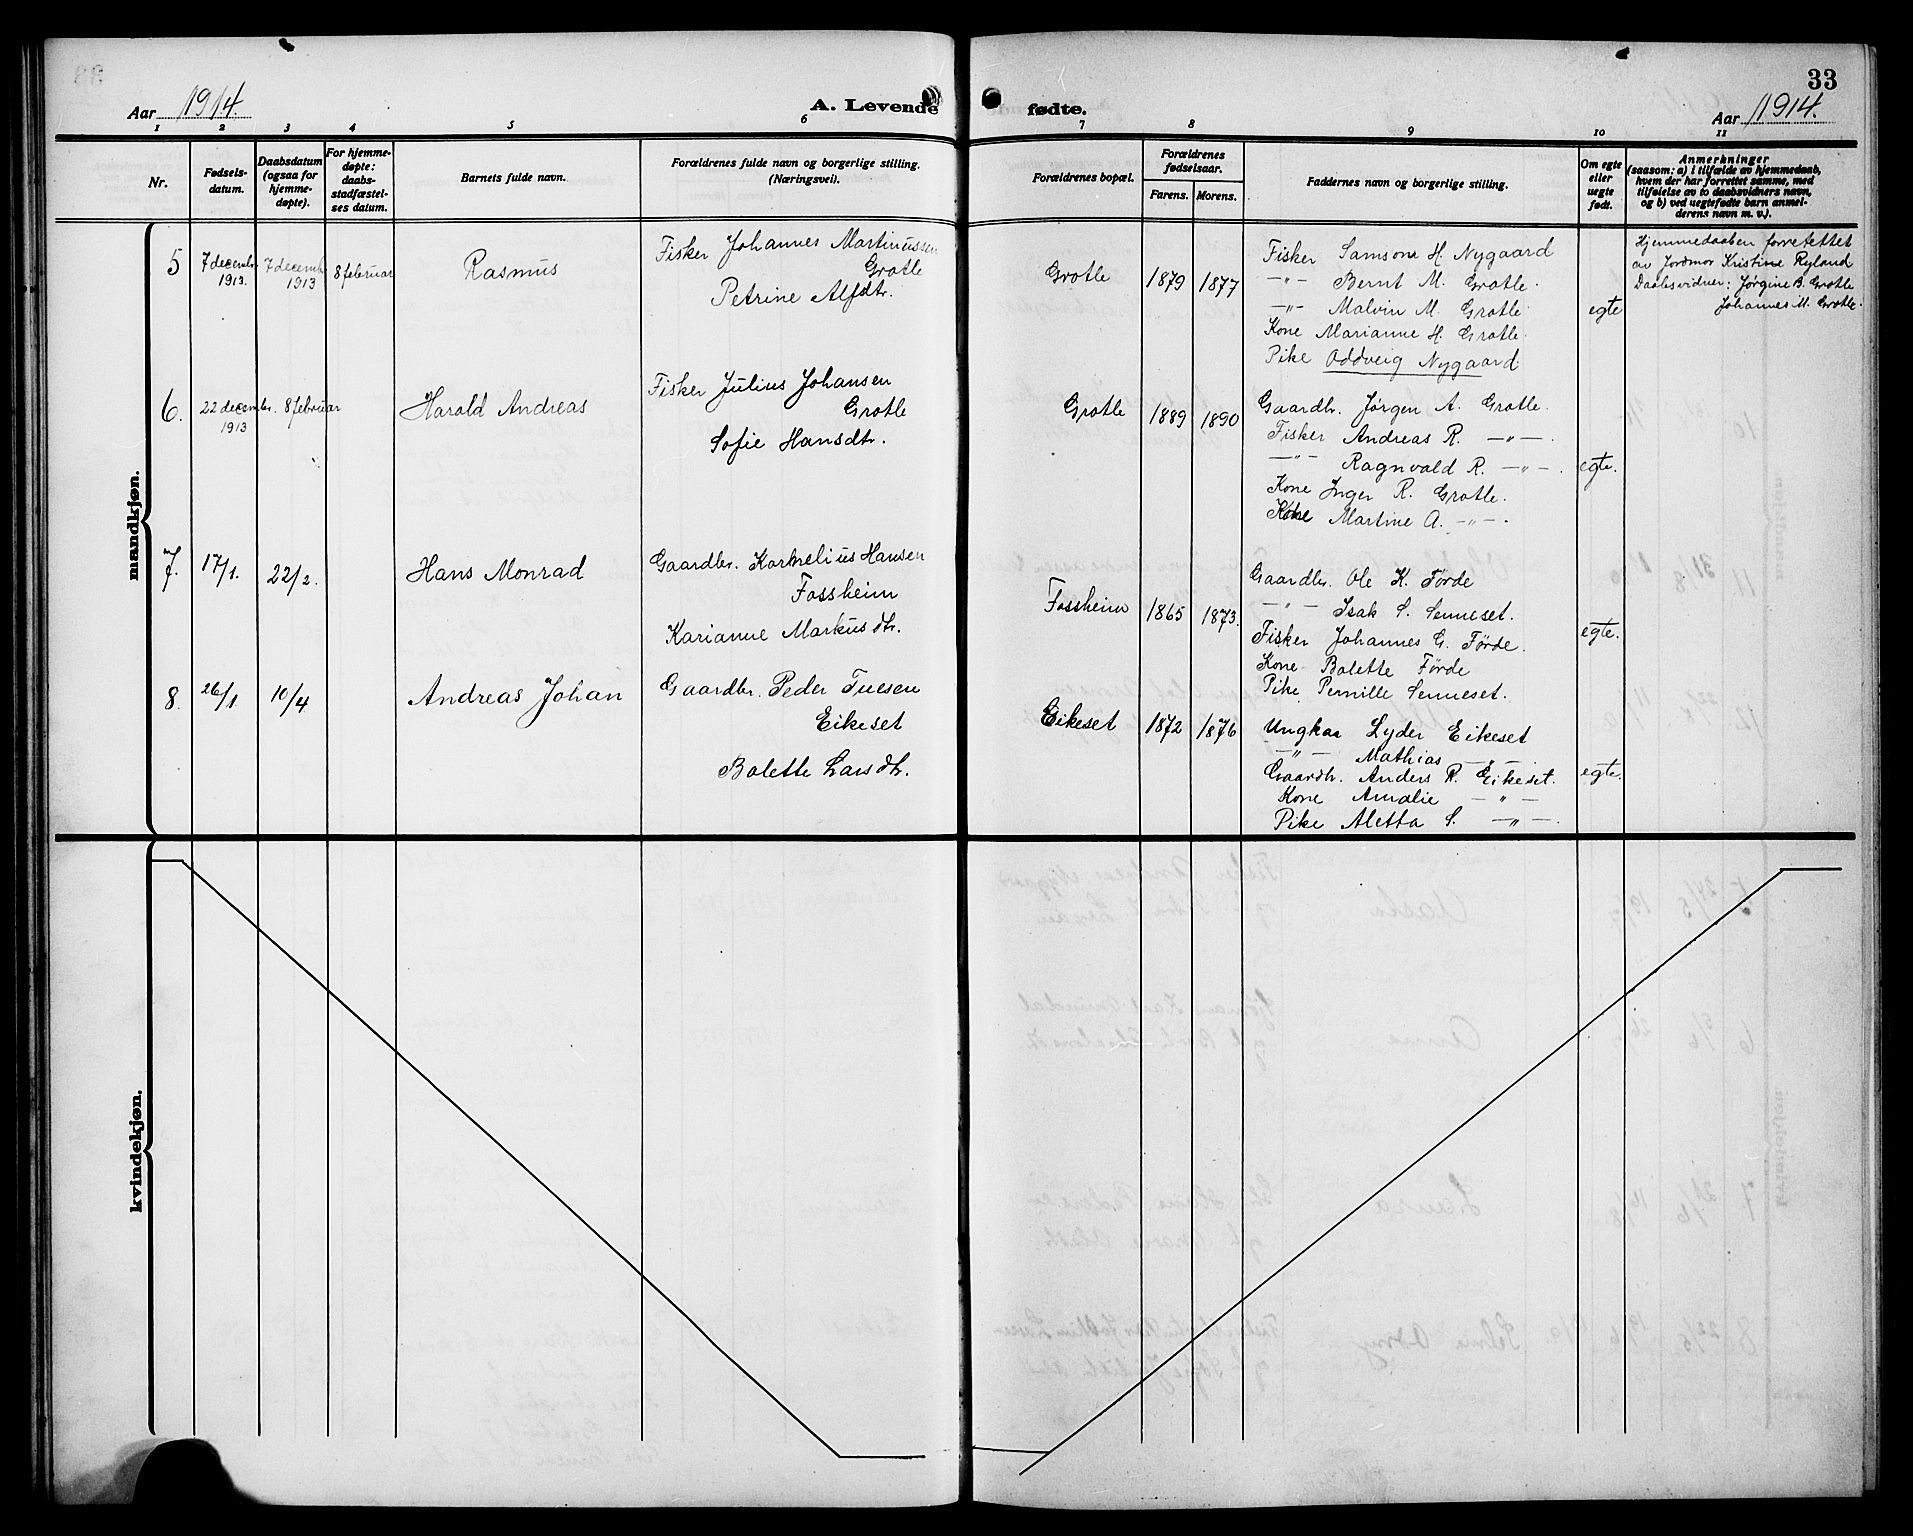 33
Aar 1914.
A. Levende
fødte.
Aar 1914.
1 2 3 4 5 6 7 8 9 10 11
Nr.
Fødsels-
datum.
Daabsdatum
(ogsaa for
hjemme-
døpte).
For hjemme-
døpte:
daabs-
stadfæstel-
ses datum.
Barnets fulde navn.
Forældrenes fulde navn og borgerlige stilling.
(Næringsvei).
Forældrenes bopæl.
Forældrenes
fødselsaar.
Farens. Morens.
Faddernes navn og borgerlige stilling.
Om egte
eller
uegte
født.
Anmerkninger
(saasom: a) i tilfælde av hjemmedaab,
hvem der har forrettet samme, med
tilføielse av to daabsvidners navn,
og b) ved uegtefødte barn anmel-
derens navn m. v.).
mandkjøn.
5
7 decembr.
1913.
7 decembr
1913
8 februar
Rasmus
Fisker Johannes Martinussen
Grotle
Petrine Alfdtr.
Grotle
1879
1877
Fisker Samsone H. Nygaard
—„— Bernt M. Grotle.
—„— Malvin M. Grotle
Kone Marianne H. Grotle.
Pike Oddveig Nygaard
egte
Hjemmedaaben forrettet
av Jordmor Kristine Ryland
Daabsvidner: Jørgine B. Grotle
Johannes M. Grotle.
6.
22 decembr.
1913
8 februar
Harald Andreas
Fisker Julius Johansen
Grotle
Sofie Hansdtr.
Grotle
1889
1890
Gaardbr. Jørgen A. Grotle.
Fisker Andreas R. —„—.
—„— Ragnvald R. —„—.
Kone Inger R. Grotle.
Kone Martine A. —„—.
egte.
7.
17/1.
22/2.
Hans Monrad
Gaardbr. Kornelius Hansen
Fossheim
Karianne Markusdtr.
Fossheim
1865
1873.
Gaardbr. Ole K. Førde
—„— Isak S. Senneset.
Fisker Johannes G. Førde.
Kone Bolette Førde
Pike Pernille Senneset.
egte.
8.
26/1
10/4
Andreas Johan
Gaardbr. Peder Tuesen
Eikeset
Bolette Larsdtr.
Eikeset
1872
1876
Ungkar Lyder Eikeset
—„— Mathias —„—
Gaardbr. Anders R. Eikeset.
Kone Amalie —„—
Pike Aletta S. —„—.
egte.
kvindekjøn.